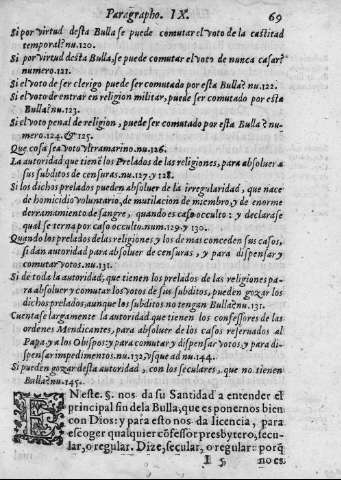 Paragrapho. IX. 69
Si por virtud desta Bulla se puede comutar el voto de la castitad
temporal? nu.120.
Si por virtud desta Bulla, se puede comutar el voto de nunca casar?
numero.121.
Si el voto de ser clerigo puede ser comutado por esta Bulla? nu.122.
Si el voto de entrar en religion militar, puede ser comutado por esta
Bulla? nu.123.
Si el voto penal de religion, puede ser comutado por esta Bulla? nu-
mero.124. & 125.
Que cosa sea voto vltramarino. nu.126.
La autoridad que tienē los Prelados de las religiones, para absoluer a
sus subditos de censuras. nu.127. y 128.
Si los dichos prelados pueden absoluer de la irregularidad, que nace
de homicidio voluntario, de mutilacion de miembro, y de enorme
derramamiento de sangre, quando es caso occulto: y declarase
qual se terna por caso occulto. num.129. y 130.
Quando los prelados de las religiones y los de mas conceden sus casos,
si dan autoridad para absoluer de censuras, y para dispensar y
comutar votos. nu.131.
Si de toda la autoridad, que tienen los prelados de las religiones pa-
ra absoluer y comutar los votos de sus subditos, pueden gozar los
dichos prelados, aunque los subditos no tengan Bulla? nu.131.
Cuentase largamente la autoridad que tienen los confessores de las
ordenes Mendicantes, para absoluer de los casos reseruados al
Papa y a los Obispos: y para comutar y dispensar votos, y para di-
spensar impedimentos. nu.132. vsque ad nu.144.
Si pueden gozar desta autoridad, con los seculares, que no tienen
Bulla? nu.145.
EN este. §. nos da su Santidad a entender el
principal fin dela Bulla, que es ponernos bien
con Dios: y para esto nos da licencia, para
escoger qualquier cōfessor presbytero, secu-
lar, o regular. Dize, secular, o regular: porq̄
I 5 no es